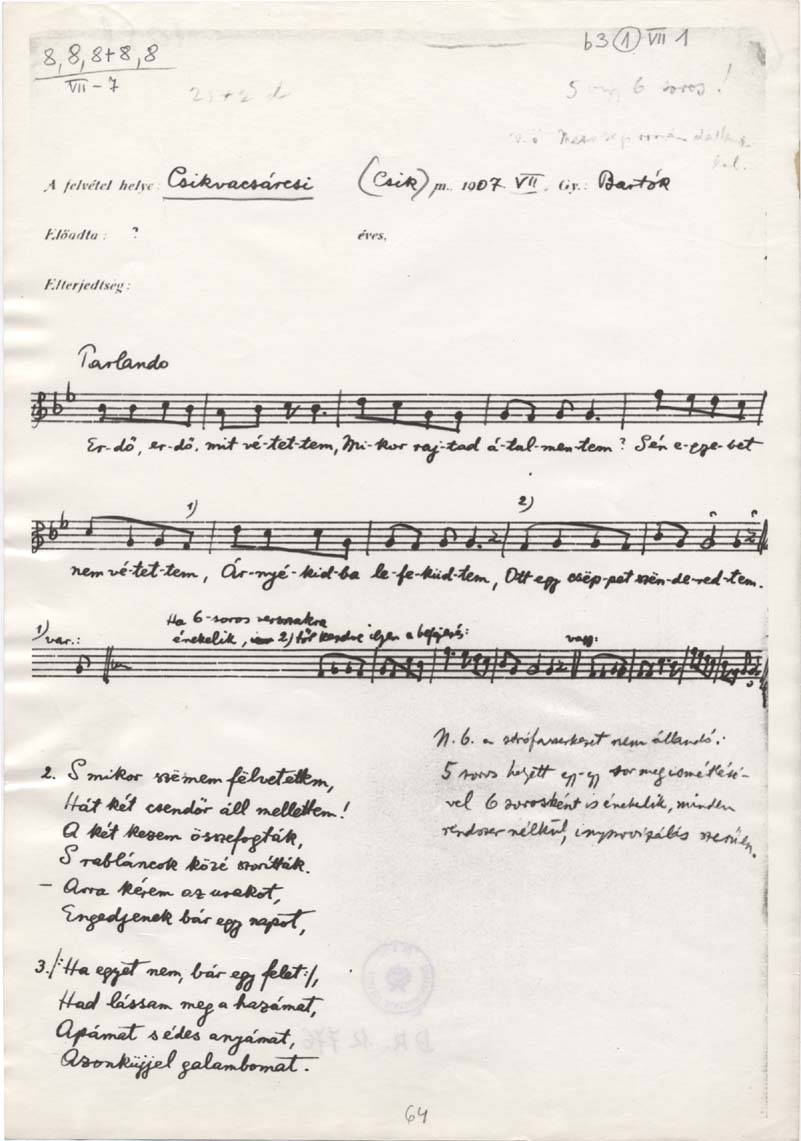 8, 8, 8+8, 8
VII - 7
b3 1 VII 1
5 vagy 6 soros!
A felvétel helye: Csikvacsárcsi (Csik) m., 1907 VII. Gy.: Bartók
Előadta: ? éves,
Elterjedtség:
Parlando
Er-dő, er-dő, mit vé-tet-tem, Mi-kor raj-tad á-tal-men-tem? Sén e-gye-bet
1) 2)
nem vé-tet-tem, Ár-nyé-kid-ba le-fe-küd-tem, Ott egy csëp-pet szën-de-red-tem.
1) var.: Ha 6-soros versszakra
énekelik, 2) től kezdve ilyen a befejezés: vagy:
N.B. a strófaszerkezet nem állandó:
5 soros helyett egy-egy sor megismétlésé-
vel 6 sorosként is énekelik, minden
rendszer nélkül, improvizálás szerűen.
2. S mikor szëmem fëlvetettem,
Hát két csendőr áll mellettem!
A két kezem összefogták,
S rabláncok közé szorították.
– Arra kérem az urakot,
Engedjenek bár egy napot,
3. /: Ha egyet nem, bár egy felet :/,
Had lássam meg a hazámat,
Apámat s édes anyámat,
Azonküjjel galambomat.
64